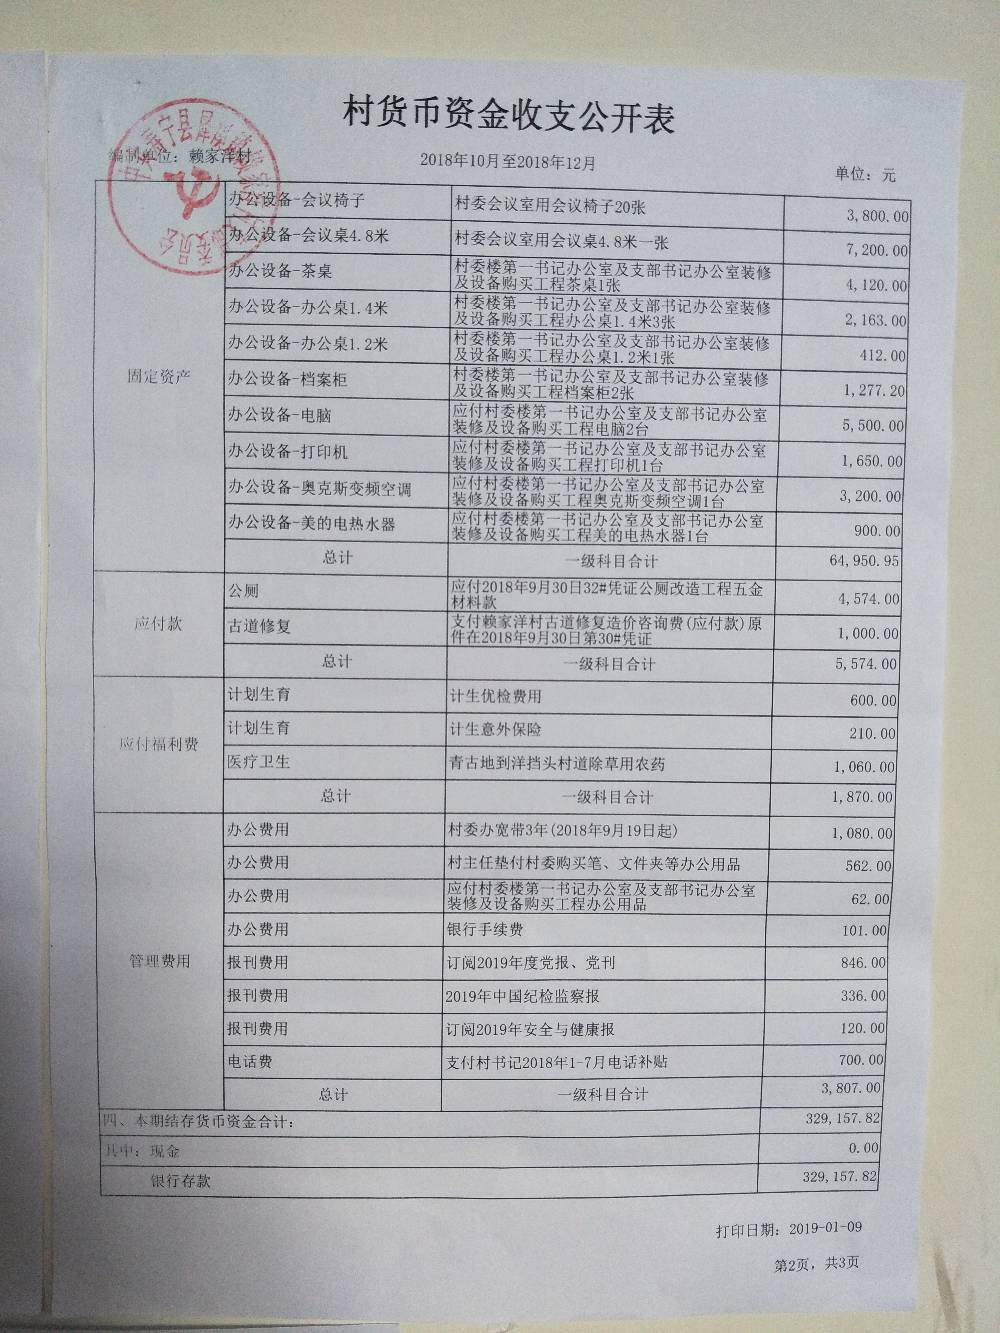 村货币资金收支公开表
编制单位：赖家洋村
2018年10月至2018年12月
单位：元
固定资产
办公设备-会议椅子 村委会议室用会议椅子20张 3,800.00
办公设备-会议桌4.8米 村委会议室用会议桌4.8米一张 7,200.00
办公设备-茶桌 村委楼第一书记办公室及支部书记办公室装修
及设备购买工程茶桌1张 4,120.00
办公设备-办公桌1.4米 村委楼第一书记办公室及支部书记办公室装修
及设备购买工程办公桌1.4米3张 2,163.00
办公设备-办公桌1.2米 村委楼第一书记办公室及支部书记办公室装修
及设备购买工程办公桌1.2米1张 412.00
办公设备-档案柜 村委楼第一书记办公室及支部书记办公室装修
及设备购买工程档案柜2张 1,277.20
办公设备-电脑 应付村委楼第一书记办公室及支部书记办公室
装修及设备购买工程电脑2台 5,500.00
办公设备-打印机 应付村委楼第一书记办公室及支部书记办公室
装修及设备购买工程打印机1台 1,650.00
办公设备-奥克斯变频空调 应付村委楼第一书记办公室及支部书记办公室
装修及设备购买工程奥克斯变频空调1台 3,200.00
办公设备-美的电热水器 应付村委楼第一书记办公室及支部书记办公室
装修及设备购买工程美的电热水器1台 900.00
总计 一级科目合计 64,950.95
应付款
公厕 应付2018年9月30日32#凭证公厕改造工程五金
材料款 4,574.00
古道修复 支付赖家洋村古道修复造价咨询费(应付款)原
件在2018年9月30日第30#凭证 1,000.00
总计 一级科目合计 5,574.00
应付福利费
计划生育 计生优检费用 600.00
计划生育 计生意外保险 210.00
医疗卫生 青古地到洋挡头村道除草用农药 1,060.00
总计 一级科目合计 1,870.00
管理费用
办公费用 村委办宽带3年(2018年9月19日起) 1,080.00
办公费用 村主任垫付村委购买笔、文件夹等办公用品 562.00
办公费用 应付村委楼第一书记办公室及支部书记办公室
装修及设备购买工程办公用品 62.00
办公费用 银行手续费 101.00
报刊费用 订阅2019年度党报、党刊 846.00
报刊费用 2019年中国纪检监察报 336.00
报刊费用 订阅2019年安全与健康报 120.00
电话费 支付村书记2018年1-7月电话补贴 700.00
总计 一级科目合计 3,807.00
四、本期结存货币资金合计： 329,157.82
其中：现金 0.00
银行存款 329,157.82
打印日期：2019-01-09
第2页，共3页